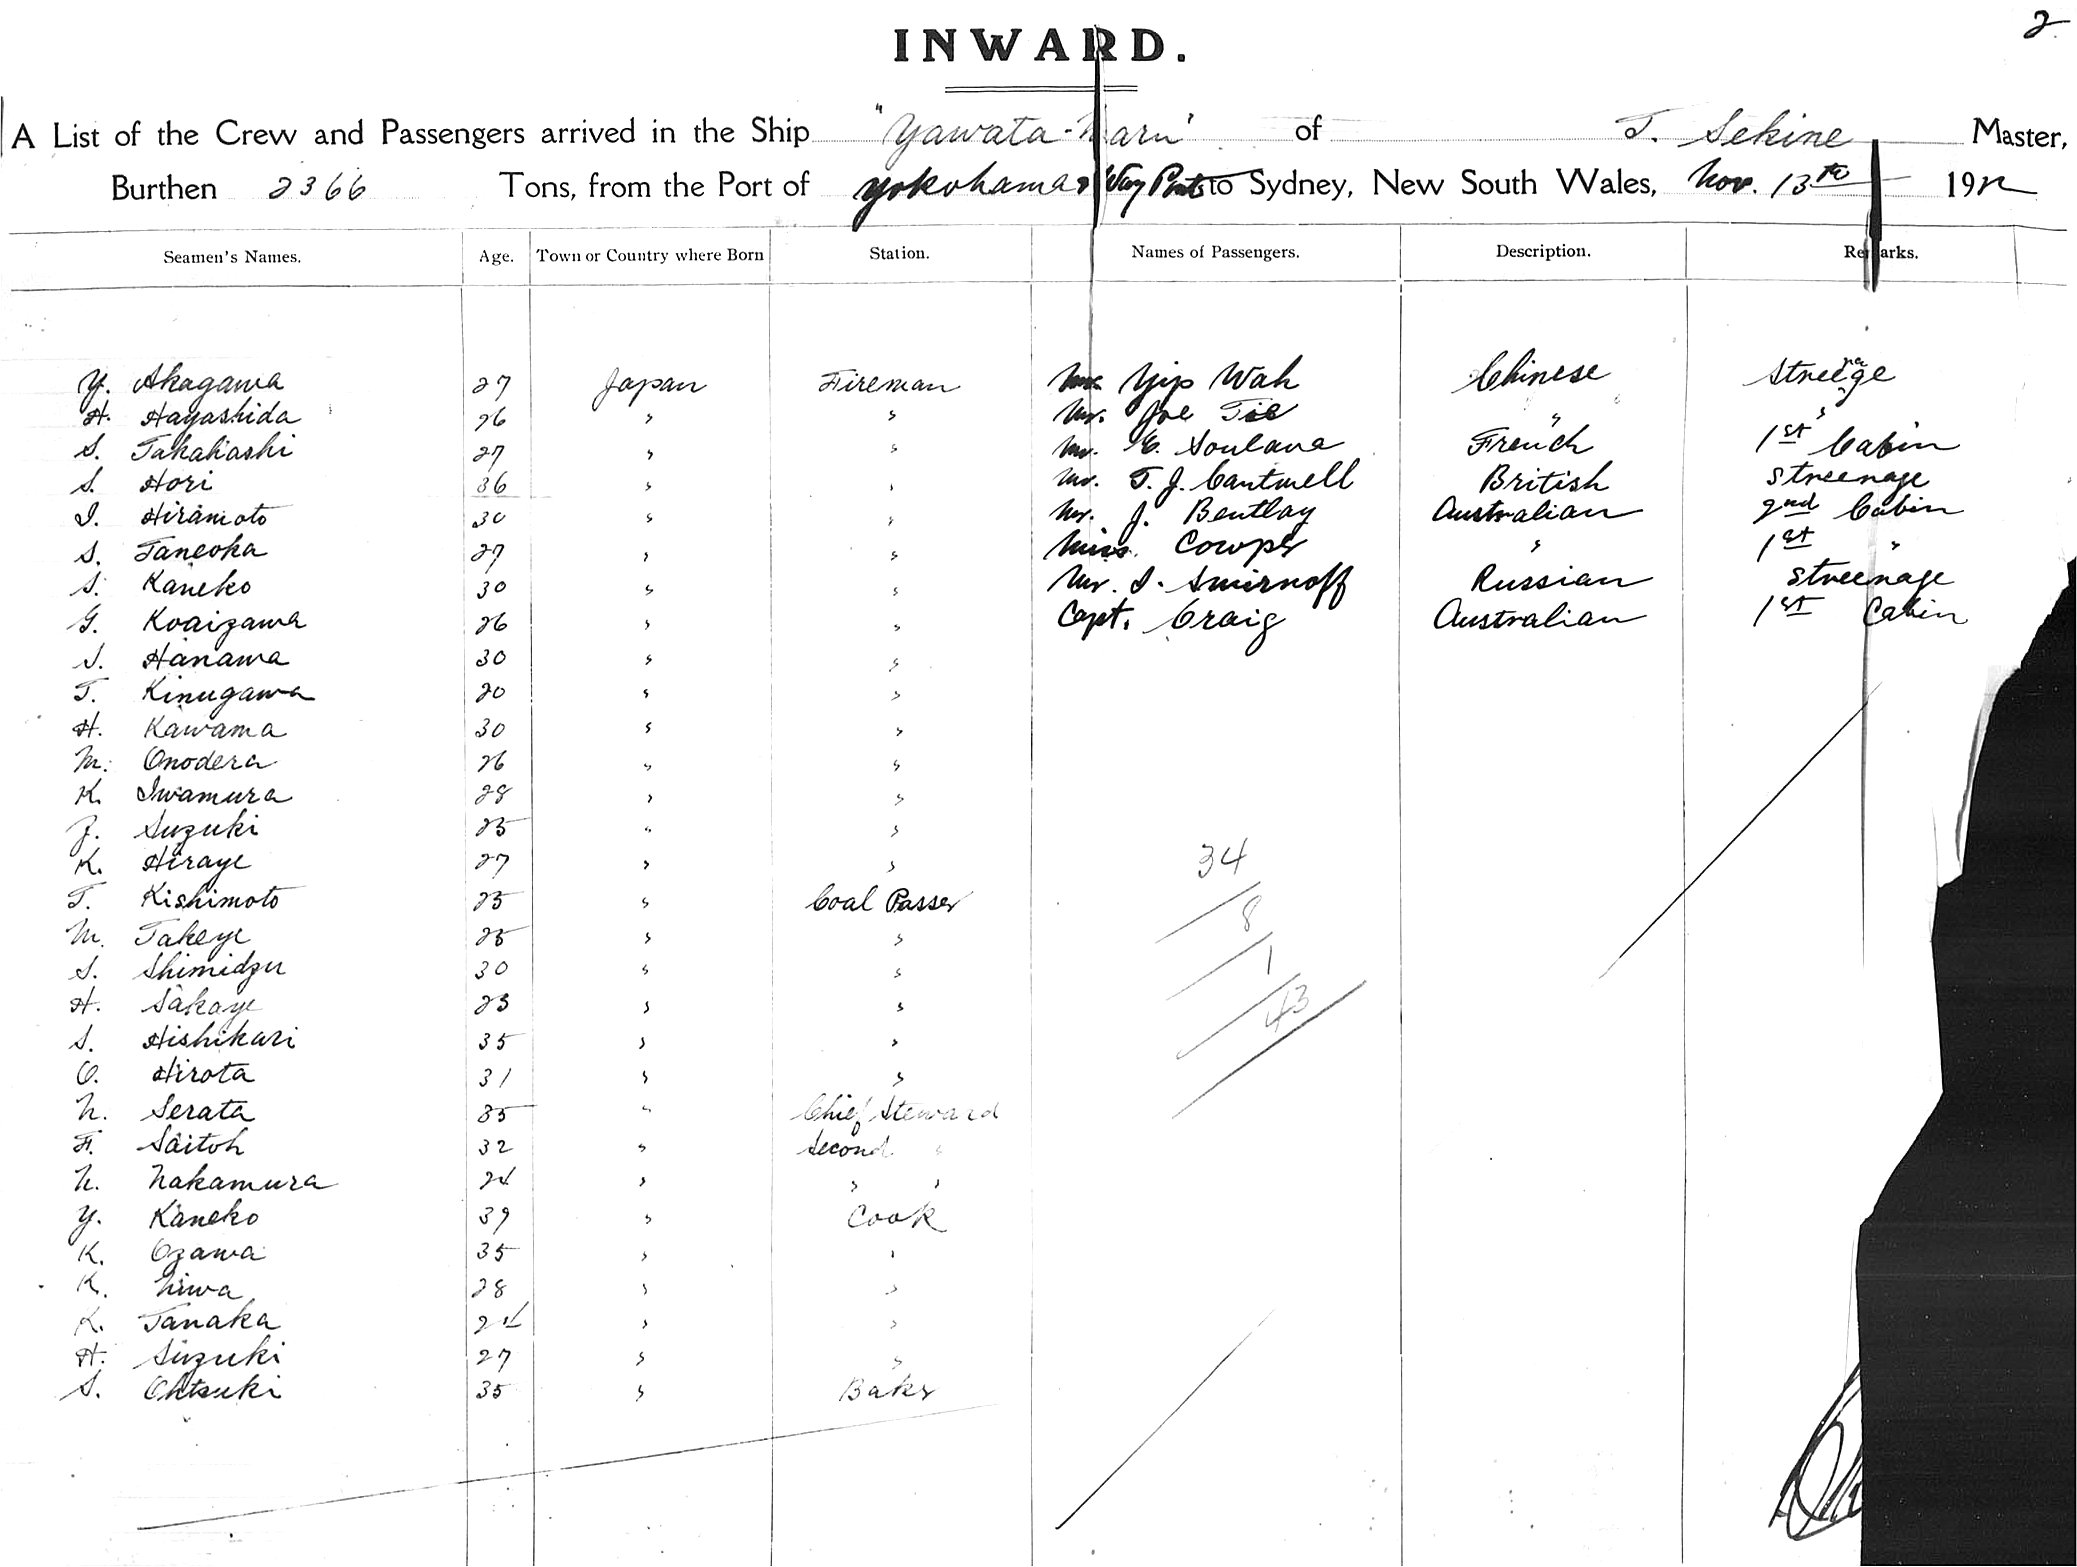 2
INWARD.
A List of the Crew and Passengers arrived in the Ship "Yawata-Maru" of T. Sekine Master,
Burthen 2366 Tons, from the Port of Yokohama & Way Ports to Sydney, New South Wales, Nov. 13th 1912
Seamen's Names. Age. Town or Country where Born Station. Names of Passengers. Description. Remarks.
Y. Akagawa 27 Japan Fireman Yip Wah Chinese Streenage
H. Hayashida 26 " " Mr. Joe Tie " "
S. Takahashi 27 " " Mr. E. Soulana French 1st Cabin
S. Hori 36 " " Mr. T. J. Cantwell British Streenage
I. Hiramoto 30 " " Mr. J. Bentlay Australian 2nd Cabin
S. Taneoka 27 " " Miss. Cowper " 1st "
S. Kaneko 30 " " Mr. I. Smirnoff Russian Streenage
G. Koaizawa 26 " " Capt. Craig Australian 1st Cabin
S. Hanawa 30 " "
T. Kinugawa 20 " "
H. Kawama 30 " "
M. Onodera 26 " "
K. Iwamura 28 " "
Z. Suzuki 25 " "
K. Hiraye 27 " " 34
T. Kishimoto 25 " Coal Passer 8
M. Takeye 25 " "
S. Shimidzu 30 " " 1
H. Sakaye 23 " " 43
S. Hishikari 35 " "
O. Hirota 31 " "
N. Serata 35 " Chief Steward
F. Saitoh 32 " Second "
N. Nakamura 24 " " "
Y. Kaneko 39 " Cook
K. Ozawa 35 " "
K. Niwa 28 " "
K. Tanaka 24 " "
H. Suzuki 27 " "
S. Ohtsuki 35 " Baker